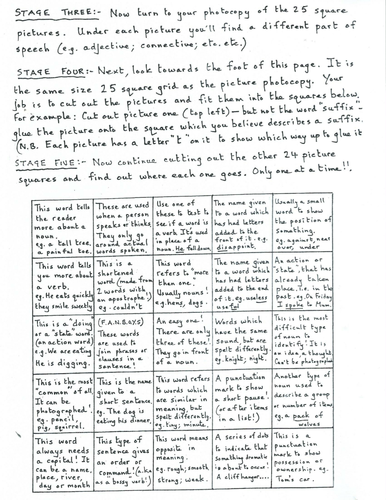 STAGE THREE:- Now turn to your photocopy of the 25 square
pictures. Under each picture you'll find a different part of
speech (e.g. adjective; connective; etc. etc.)
STAGE FOUR:- Next, look towards the foot of this page. It is
the same size 25 square grid as the picture photocopy. Your
job is to cut out the pictures and fit them into the squares below.
For example: Cut out picture one (top left) – but not the word "suffix" –
glue the picture onto the square which you believe describes a suffix.
(N.B. Each picture has a letter "t" on it to show which way up to glue it
STAGE FIVE:- Now continue cutting out the other 24 picture
squares and find out where each one goes. Only one at a time!!.
This word tells
the reader
more about a
noun.
e.g. a tall tree,
a painful toe.
These are used
when a person
speaks or thinks.
They only go
around actual
words spoken.
Use one of
these to test to
see if a word is
a verb. It's used
in place of a
noun. He fell down.
The name given
to a word which
has had letters
added to the
front of it. e.g.
disappoint.
Usually a small
word to show
the position of
something.
e.g. against, near
over, under
This word tells
us more about
a verb.
e.g. He eats quickly
they smile sweetly
This is a
shortened
word (made from
2 words with
an apostrophe)
e.g. couldn't
This word
refers to "more
than one".
Usually nouns!
e.g. hens, dogs.
The name given
to a word which
has had letters
added to the end
of it. e.g. useless
useful
An action or
"state", that has
already taken
place, i.e. in the
past. e.g. On Friday
I spoke to Mum.
This is a "doing"
or a "state" word.
(an action word)
e.g. We are eating
He is digging.
(F.A.N.B.O.Y.S)
These words
are used to
join phrases or
clauses in a
sentence!
An easy one!
There are only
three of these!
They go in front
of a noun.
Words which
are the same
sound, but are
spelt differently
eg. knight; night.
This is the most
difficult type
of noun to
identify! It is
an idea, a thought.
Can't be photographed
This is the most
"common" of all.
It can be
photographed!
e.g. pencil,
pig, squirrel.
This is the name
given to a
short sentence.
eg. The dog is
eating his dinner.
This word refers
to words which
are similar in
meaning but
spelt differently.
eg. tiny; minute.
A punctuation
mark to show
a short pause!
(or after items
in a list!)
Another type of
noun used to
describe a group
or number of items.
eg. a pack of
wolves
This word
always needs
a capital! It
can be a name,
place, river,
day or month
This type of
sentence gives
an order or
command! (a.k.a
as a "bossy verb"!)
This word means
opposite in
meaning.
eg. rough; smooth
strong; weak.
A series of dots
to indicate that
something dramatic
is about to occur.
A cliff hanger....
This is a
punctuation
mark to show
possession or
ownership. eg.
Tom's car.